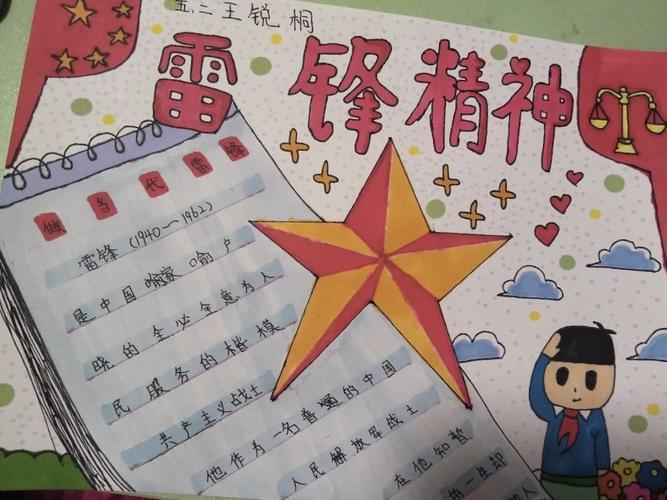 三二王锐桐
雷锋精神
做当代雷锋
雷锋（1940—1962）
是中国 喻家 喻户
晓的全心全意为人
民服务的楷模
共产主义战士
他作为一名普通的中国
人民解放军战士
在他知
的一生却